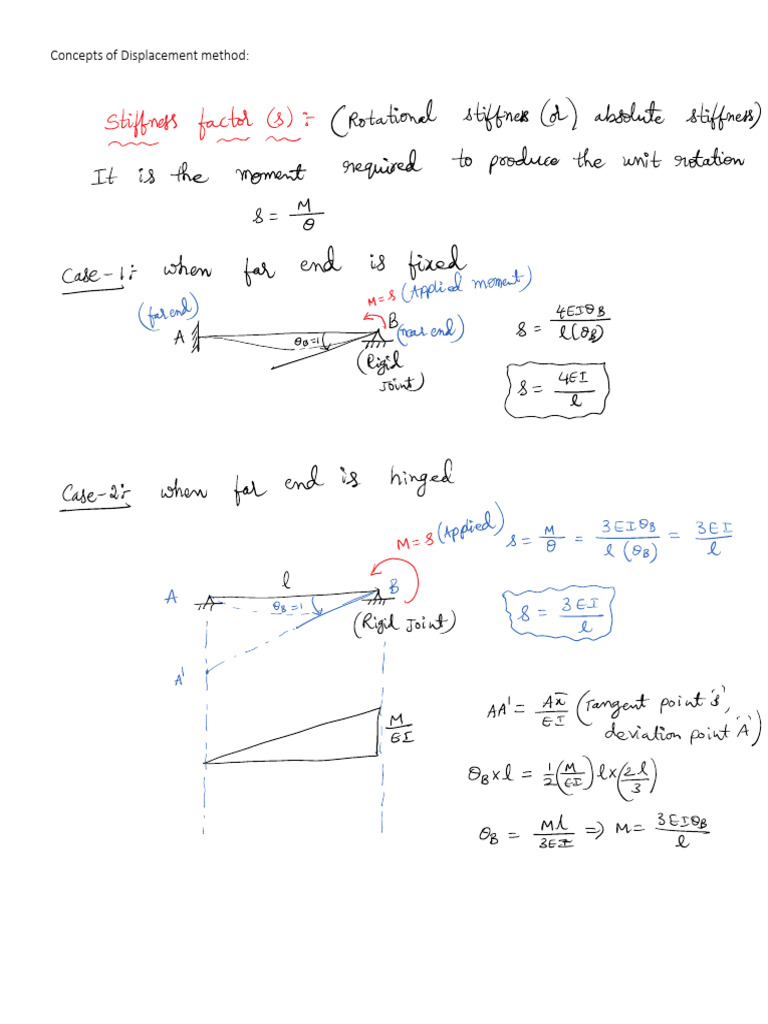 Concepts of Displacement method:
Stiffness factor (s) :- (Rotational stiffness (or) absolute stiffness)
It is the moment required to produce the unit rotation
s = M/θ
Case-1:- when far end is fixed
(far end)
M=s (Applied moment)
A
B
θB=1
(near end)
(Rigid Joint)
s = 4EIθB / l(θB)
s = 4EI/l
Case-2:- when far end is hinged
M=s (Applied)
s = M/θ = 3EIθB / l(θB) = 3EI/l
l
A
B
θB=1
(Rigid Joint)
s = 3EI/l
A'
M/EI
AA' = Ax̄/EI (Tangent point 's', deviation point 'A')
θB x l = 1/2 (M/EI) l x (2l/3)
θB = Ml/3EI => M = 3EIθB/l